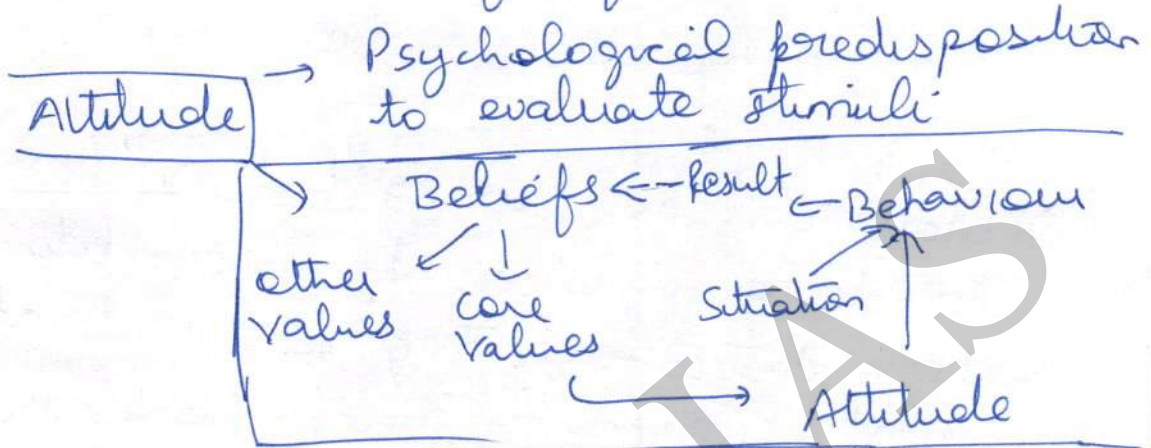 → Psychological predisposition
Attitude to evaluate stimuli
→ Beliefs ← Result ← Behaviour
other values core values Situation
→ Attitude
IAS